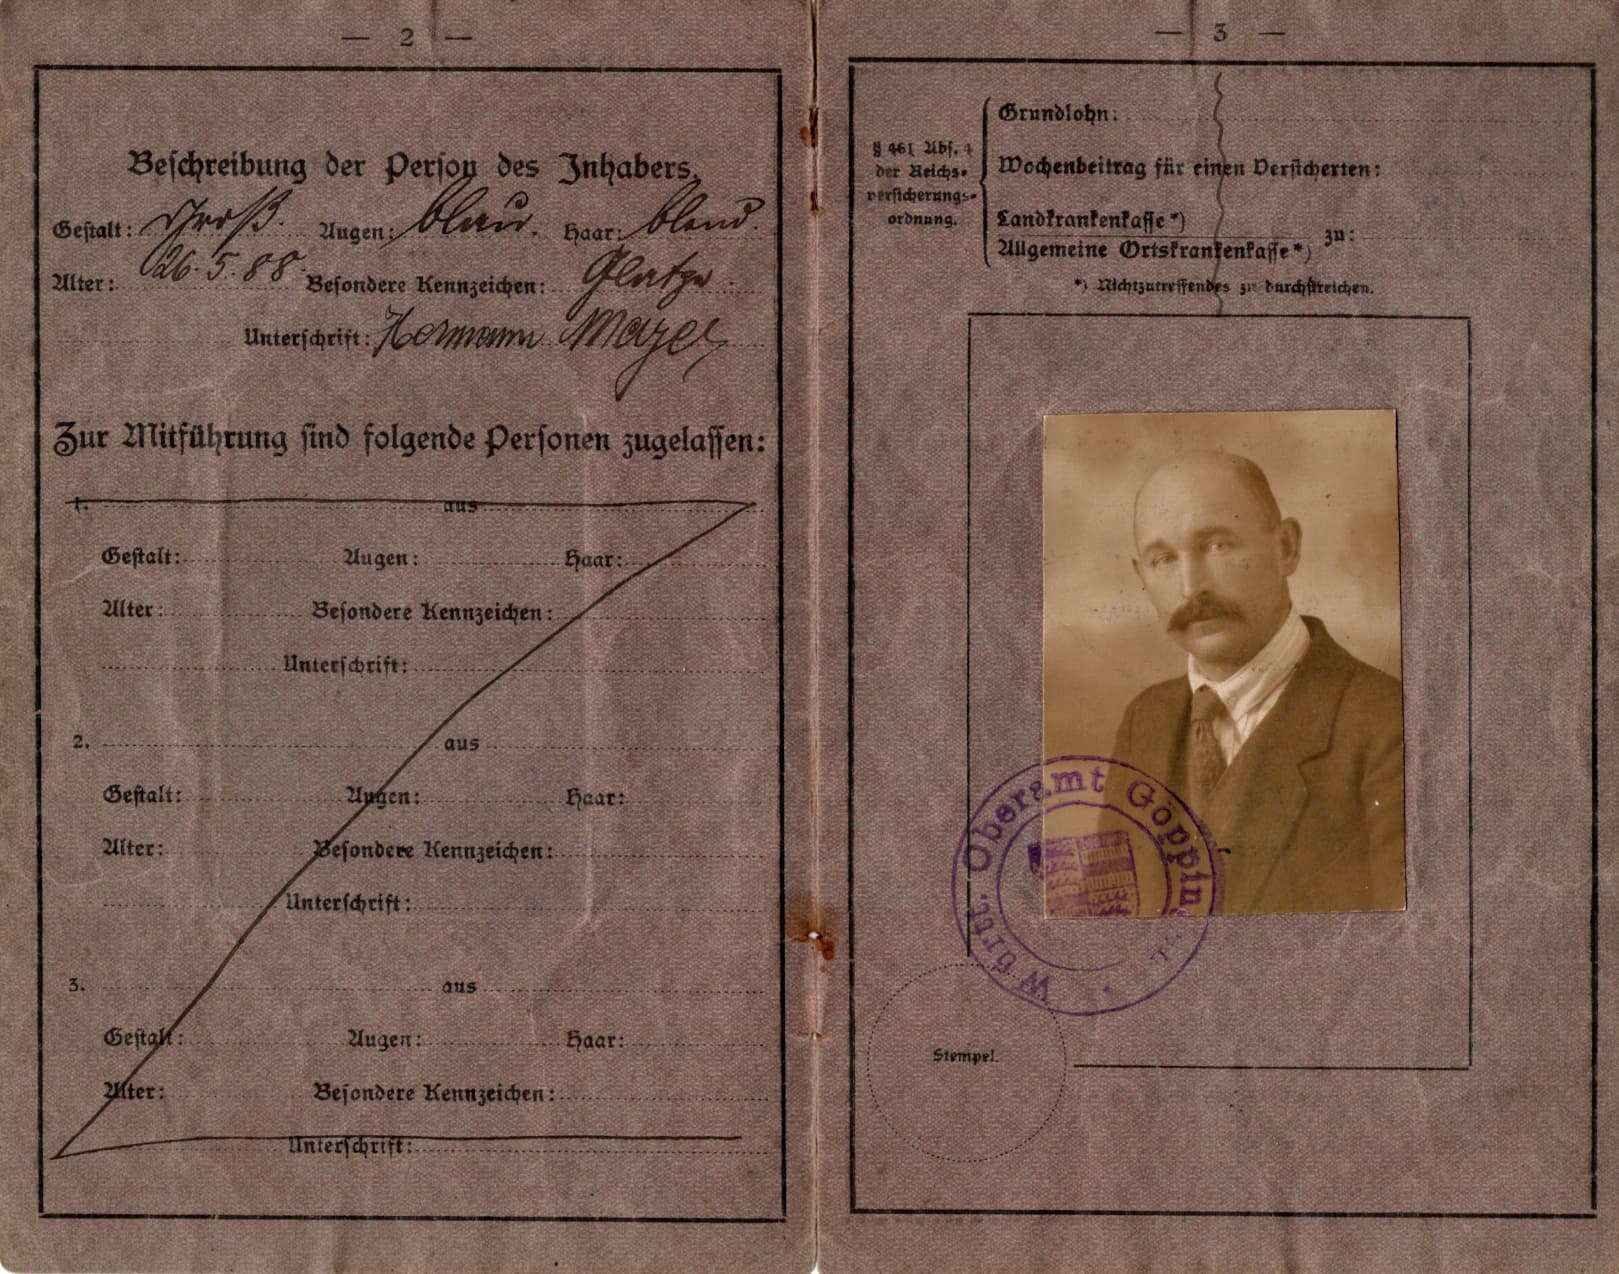 — 2 —
Beschreibung der Person des Inhabers.
Gestalt: Groß. Augen: blau. Haar: blond.
Alter: 26. 5. 88. Besondere Kennzeichen: Glatze
Unterschrift: Hermann Mayer
Zur Mitführung sind folgende Personen zugelassen:
1. aus
Gestalt: Augen: Haar:
Alter: Besondere Kennzeichen:
Unterschrift:
2. aus
Gestalt: Augen: Haar:
Alter: Besondere Kennzeichen:
Unterschrift:
3. aus
Gestalt: Augen: Haar:
Alter: Besondere Kennzeichen:
Unterschrift:
— 3 —
§ 461 Abs. 4
der Reichs-
versicherungs-
ordnung.
Grundlohn:
Wochenbeitrag für einen Versicherten:
Landkrankenkasse *)
Allgemeine Ortskrankenkasse *) zu:
*) Nichtzutreffendes zu durchstreichen.
Württ. Oberamt Göppin
Stempel.